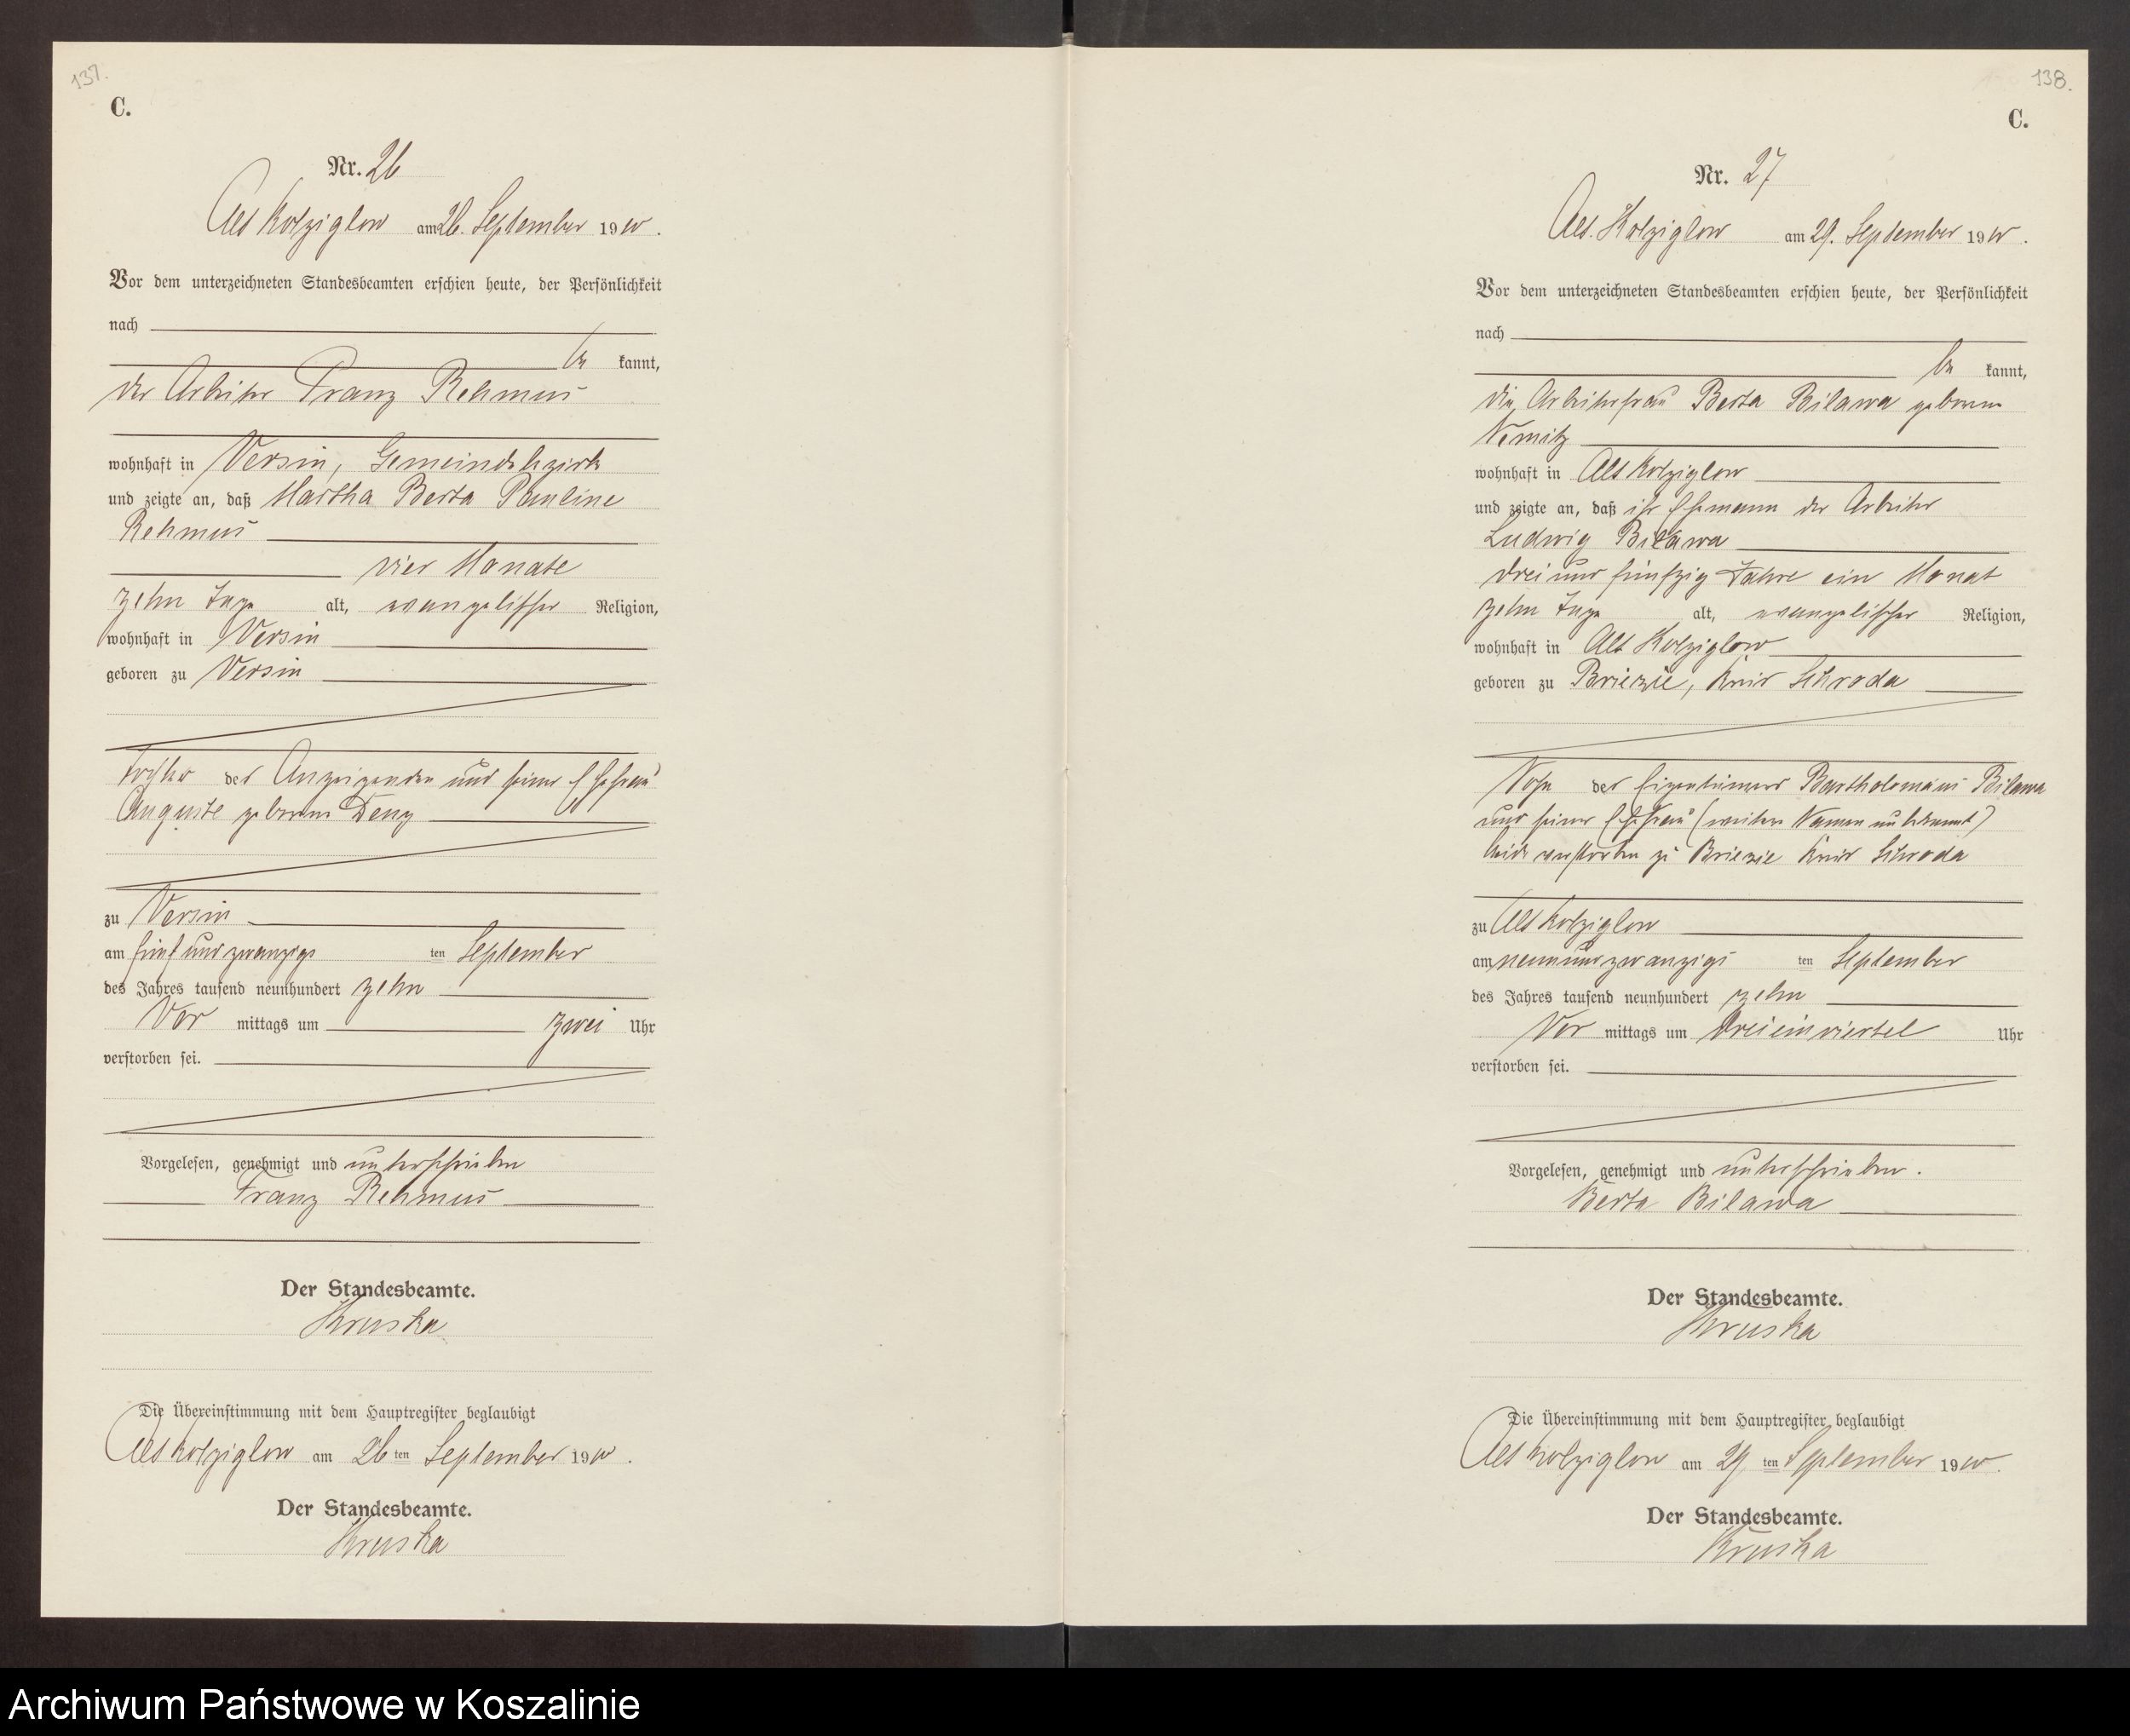 137.
C.
Nr. 26
Alt Kolziglow am 26. September 1910.
Vor dem unterzeichneten Standesbeamten erschien heute, der Persönlichkeit
nach
be kannt,
der Arbeiter Franz Rehmus
wohnhaft in Versin, Gemeindebezirk
und zeigte an, daß Martha Berta Pauline
Rehmus
vier Monate
zehn Tage alt, evangelischer Religion,
wohnhaft in Versin
geboren zu Versin
Tochter des Anzeigenden und seiner Ehefrau
Auguste geborene Denz
zu Versin
am fünfundzwanzigs ten September
des Jahres tausend neunhundert zehn
Vor mittags um zwei Uhr
verstorben sei.
Vorgelesen, genehmigt und unterschrieben
Franz Rehmus
Der Standesbeamte.
Kruska
Die Übereinstimmung mit dem Hauptregister beglaubigt
Alt Kolziglow am 26 ten September 1910.
Der Standesbeamte.
Kruska
138.
C.
Nr. 27
Alt. Kolziglow am 29. September 1910.
Vor dem unterzeichneten Standesbeamten erschien heute, der Persönlichkeit
nach
be kannt,
die Arbeiterfrau Berta Bilawa geborene
Nemitz
wohnhaft in Alt Kolziglow
und zeigte an, daß ihr Ehemann der Arbeiter
Ludwig Bilawa
dreiundfünfzig Jahre ein Monat
zehn Tage alt, evangelischer Religion,
wohnhaft in Alt Kolziglow
geboren zu Briezie, Kreis Schroda
Sohn des Eigentümers Bartholomäus Bilawa
und seiner Ehefrau (weitere Namen unbekannt)
beide verstorben zu Briezie Kreis Schroda
zu Alt Kolziglow
am neunundzwanzigs ten September
des Jahres tausend neunhundert zehn
Vor mittags um dreieinviertel Uhr
verstorben sei.
Vorgelesen, genehmigt und unterschrieben.
Berta Bilawa
Der Standesbeamte.
Kruska
Die Übereinstimmung mit dem Hauptregister beglaubigt
Alt Kolziglow am 29 ten September 1910.
Der Standesbeamte.
Kruska
Archiwum Państwowe w Koszalinie